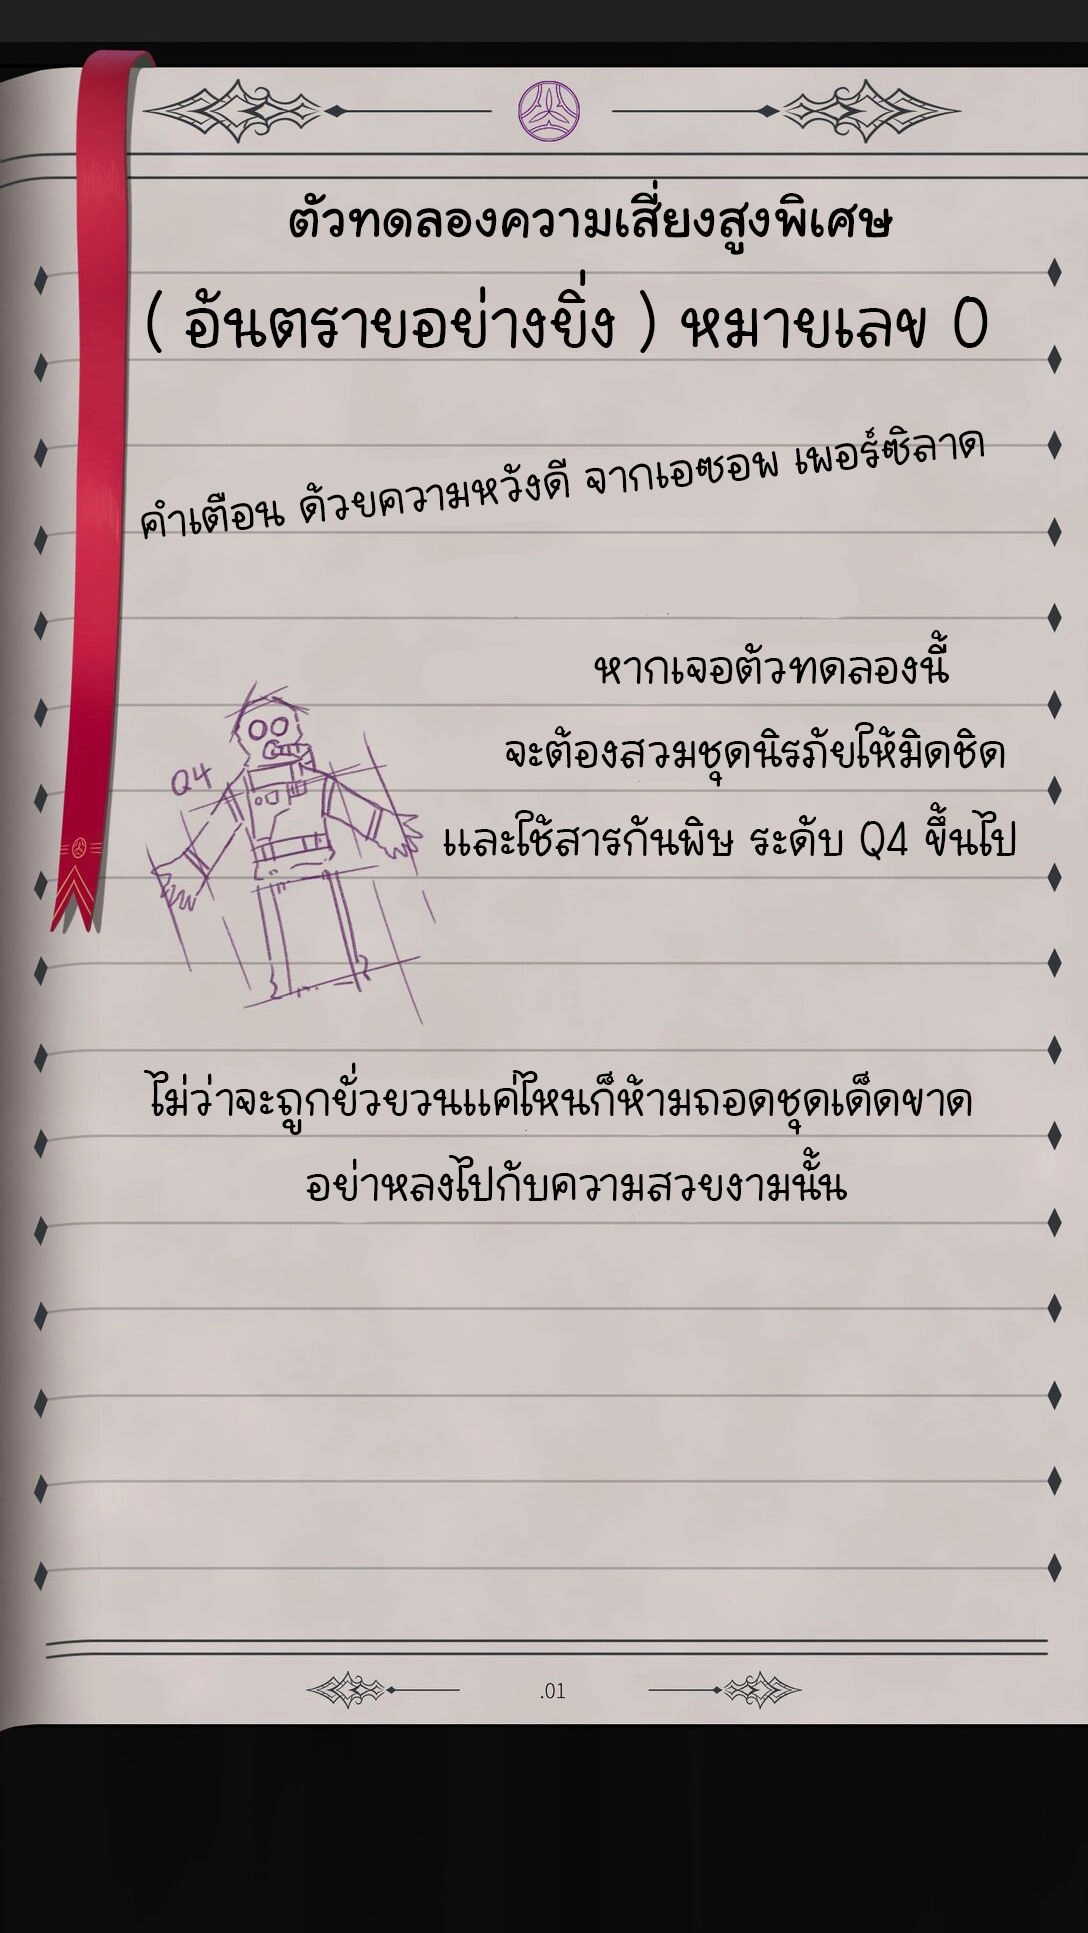 ตัวทดลองความเสี่ยงสูงพิเศษ
( อันตรายอย่างยิ่ง ) หมายเลข 0
คำเตือน ด้วยความหวังดี จากเอซอพ เพอร์ซิลาด
หากเจอตัวทดลองนี้
จะต้องสวมชุดนิรภัยให้มิดชิด
Q4
และใช้สารกันพิษ ระดับ Q4 ขึ้นไป
ไม่ว่าจะถูกยั่วยวนแค่ไหนก็ห้ามถอดชุดเด็ดขาด
อย่าหลงไปกับความสวยงามนั้น
.01